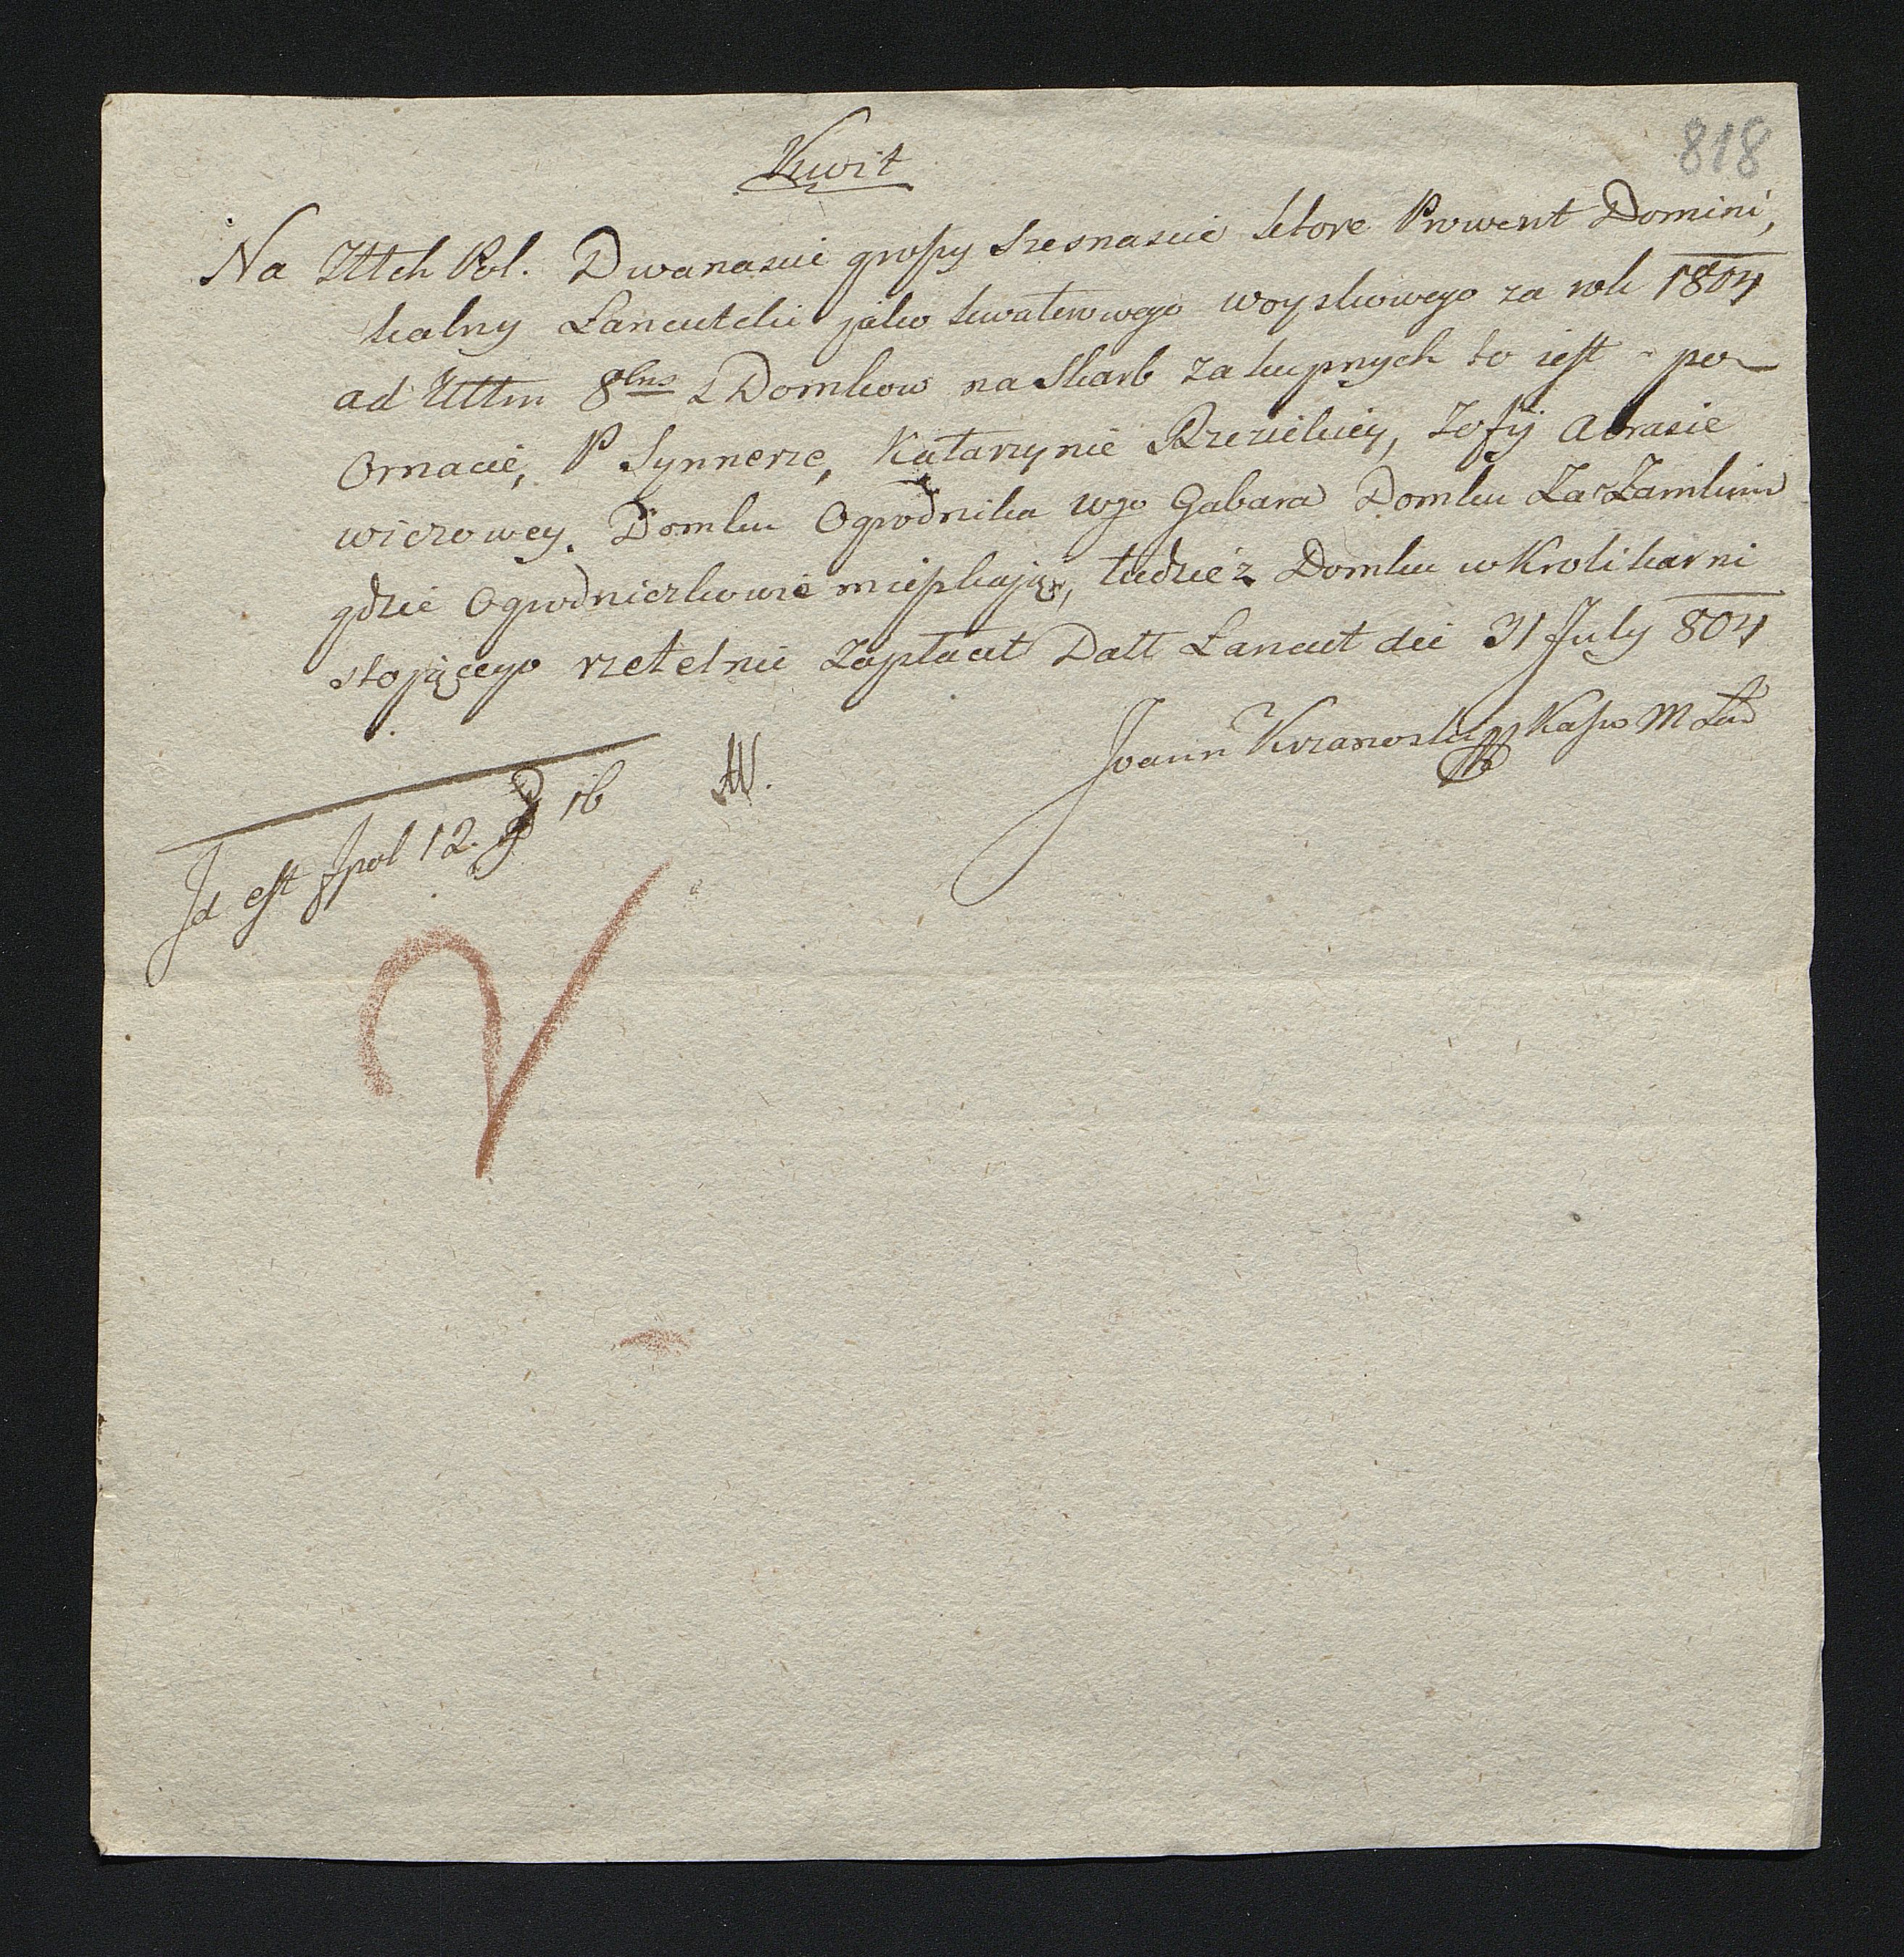 818
Kwit
Na Złłch Pol. Dwanascie groszy szesnascie ktore Prowent Domini,
kalny Łancutcki jako kwaterowego woyskowego za rok 1804
ad Ultm 8bris z Domkow na Skarb zakupnych to iest - po
Ornacie, P Synnerze, Katarzynie Rzezickiey, Zofÿ Abrasie
wiczowey. Domku Ogrodnika wgo Gabara Domku Za Zamkiem
gdzie Ogrodniczkowie mieszkają, tudzież Domku w Krolikarni
stojącego rzetelnie zapłacił Datt Łancut die 31 July 804
Joann Krzanoski Kasr M Łań
Id est fpol 12. g 16